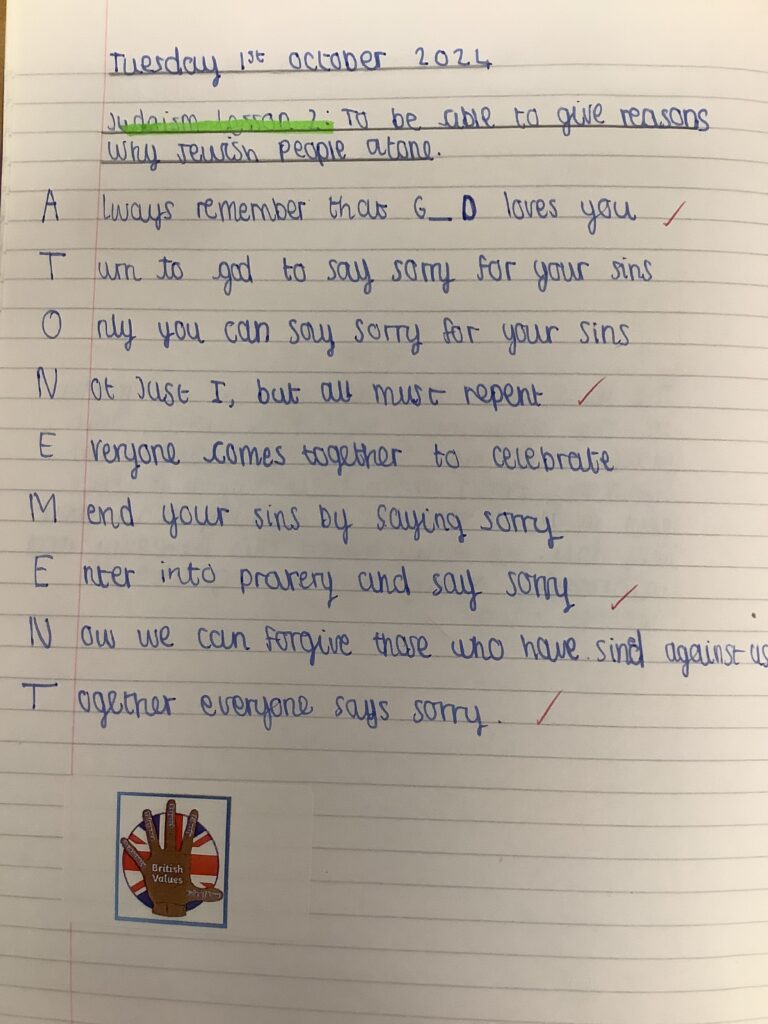 Tuesday 1st October 2024
Judaism Lesson 2: To be able to give reasons
why Jewish people atone.
A lways remember that G_D loves you
T urn to god to say sorry for your sins
O nly you can say sorry for your sins
N ot Just I, but all must repent
E veryone comes together to celebrate
M end your sins by saying sorry
E nter into prarery and say sorry
N ow we can forgive those who have sind against us
T ogether everyone says sorry.
British
Values